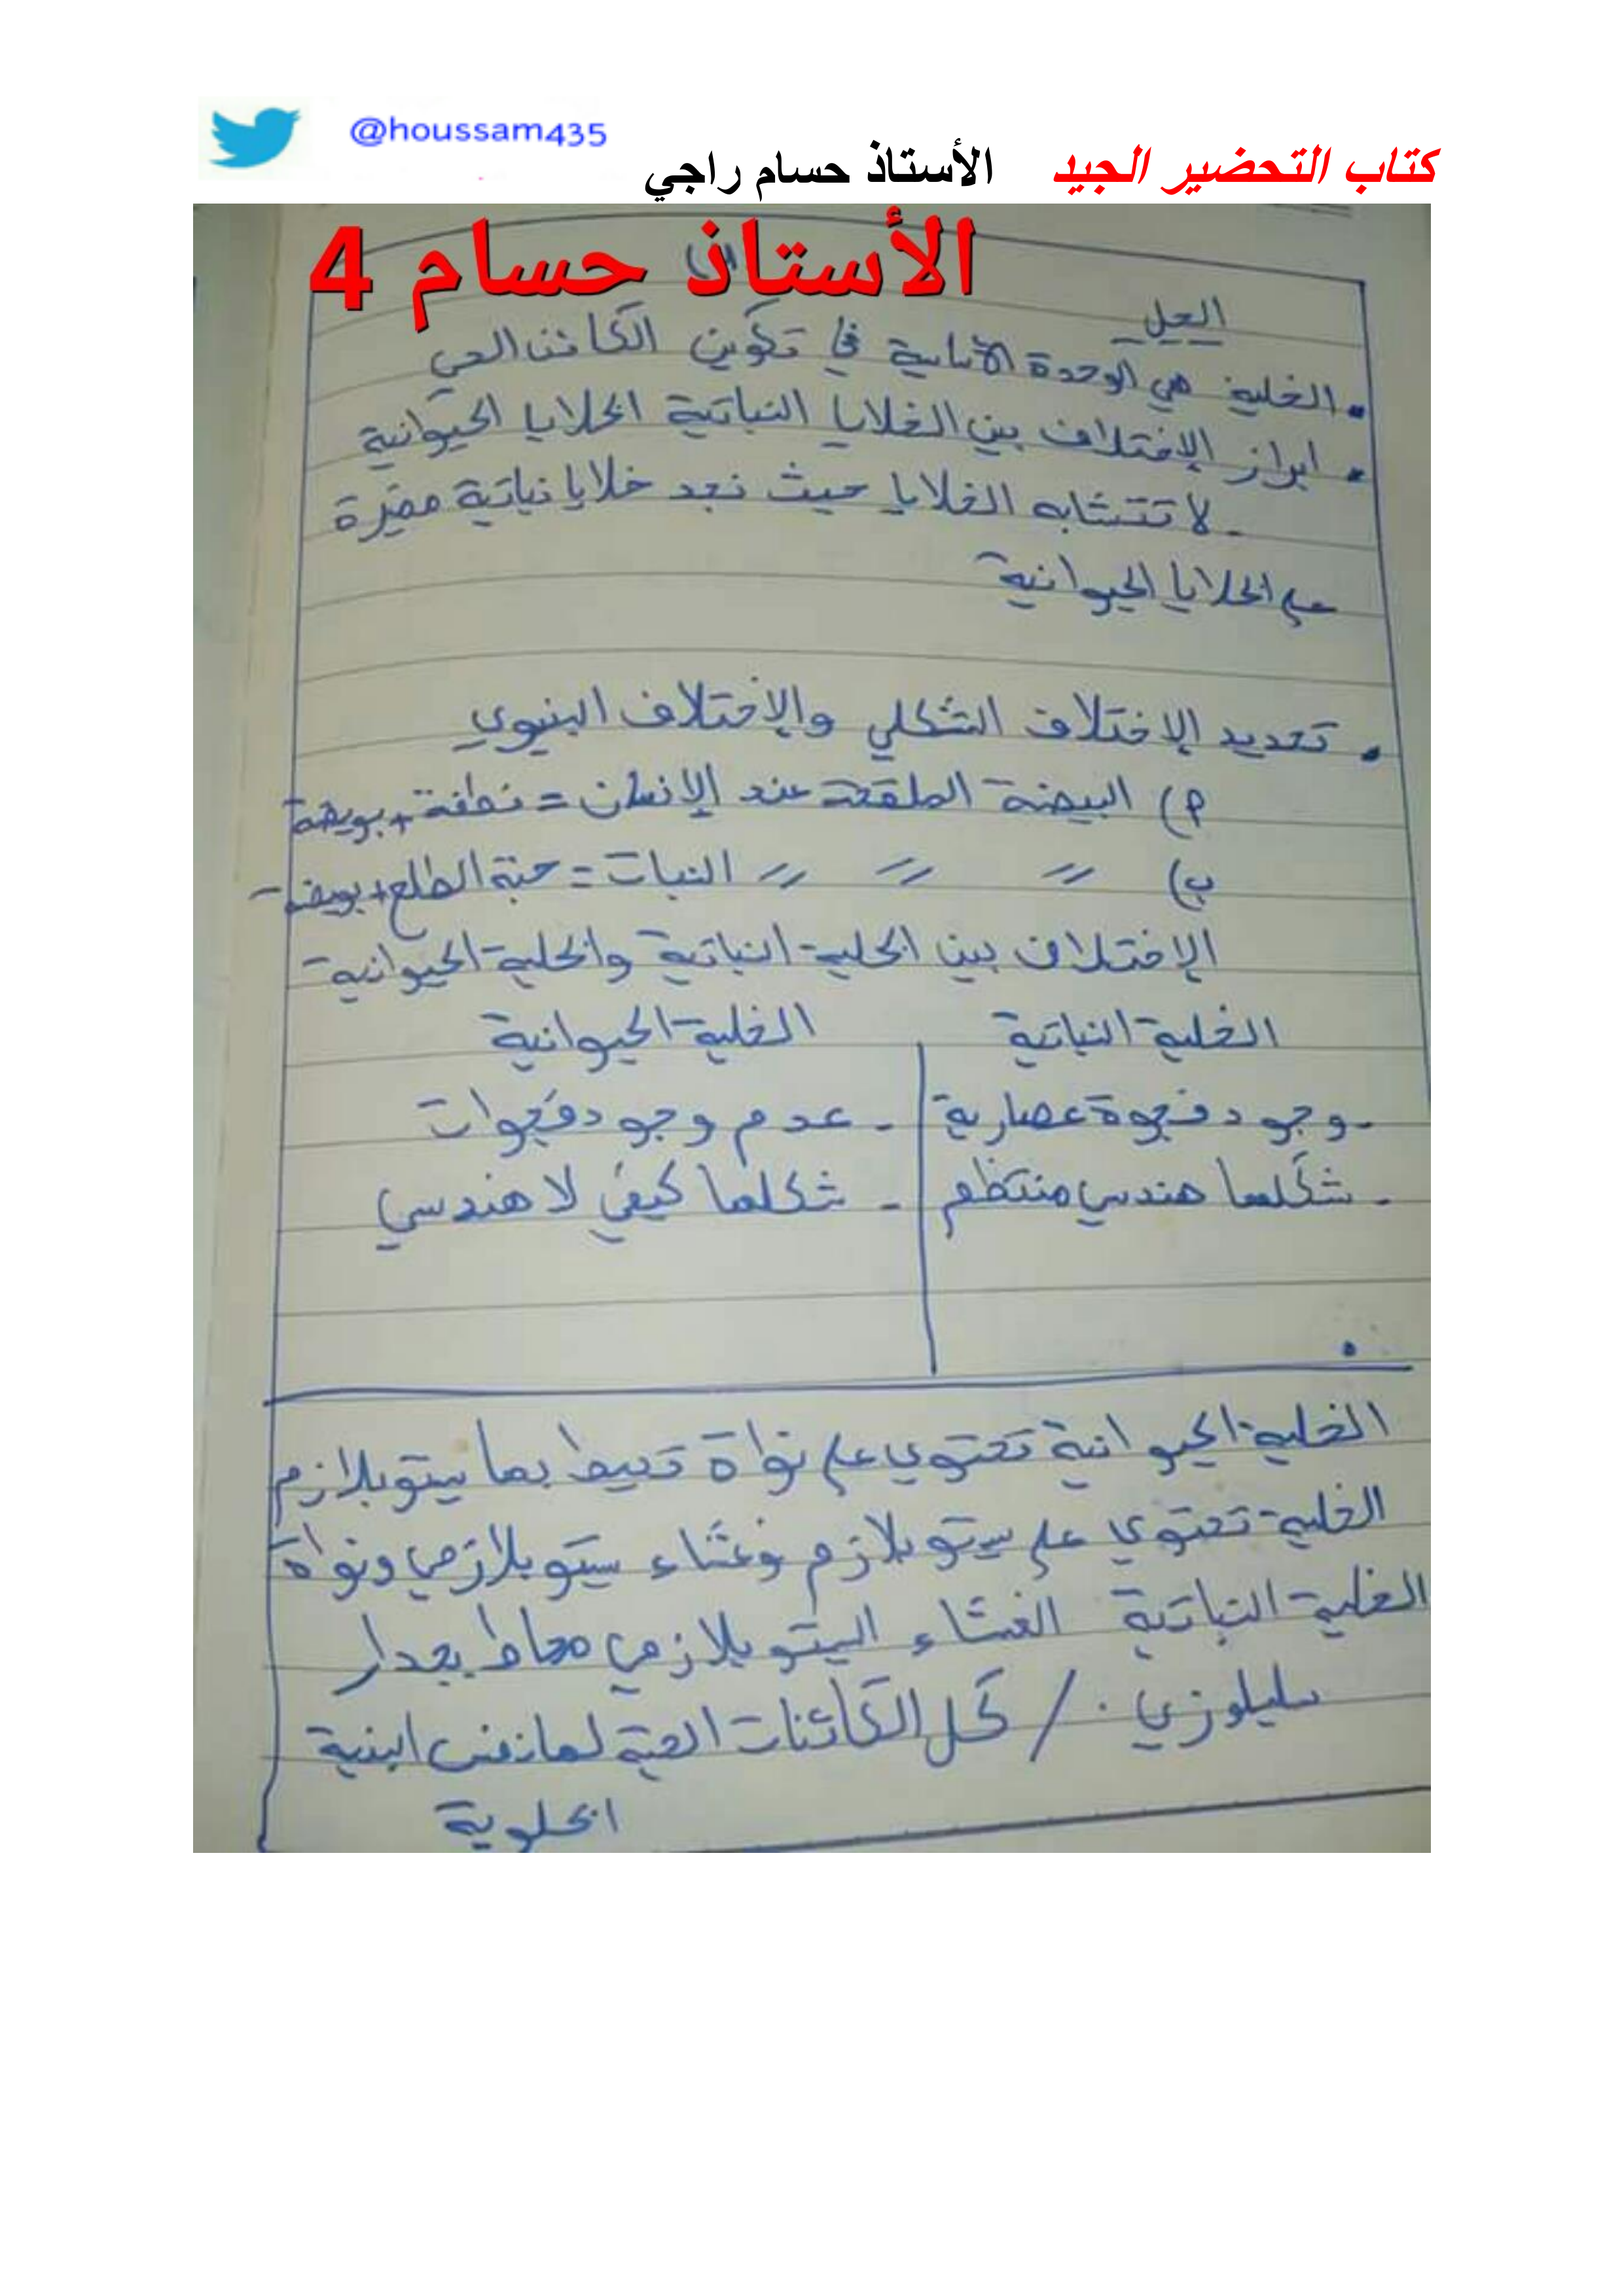 @houssam435
كتاب التحضير الجيد الأستاذ حسام راجي
الأستاذ حسام 4
الحل
• الخلية هي الوحدة الأساسية في تكوين الكائن الحي
• ابراز الإختلاف بين الخلايا النباتية الخلايا الحيوانية
- لا تتشابه الخلايا حيث نجد خلايا نباتية مميزة
على الخلايا الحيوانية
• تحديد الإختلاف الشكلي والإختلاف البنيوي
أ) البيضة الملقحة عند الإنسان = نطفة + بويضة
ب) // // // النبات = حبة الطلع + بويضة
الإختلاف بين الخلية النباتية والخلية الحيوانية
الخلية النباتية الخلية الحيوانية
- وجود فجوة عصارية - عدم وجود فجوات
- شكلها هندسي منتظم - شكلها كيفي لا هندسي
الخلية الحيوانية تحتوي على نواة تحيط بها سيتوبلازم
الخلية تحتوي على سيتوبلازم وغشاء سيتوبلازمي ونواة
الخلية النباتية الغشاء السيتوبلازمي محاط بجدار
سليلوزي . / كل الكائنات الحية لها نفس البنية
الخلوية